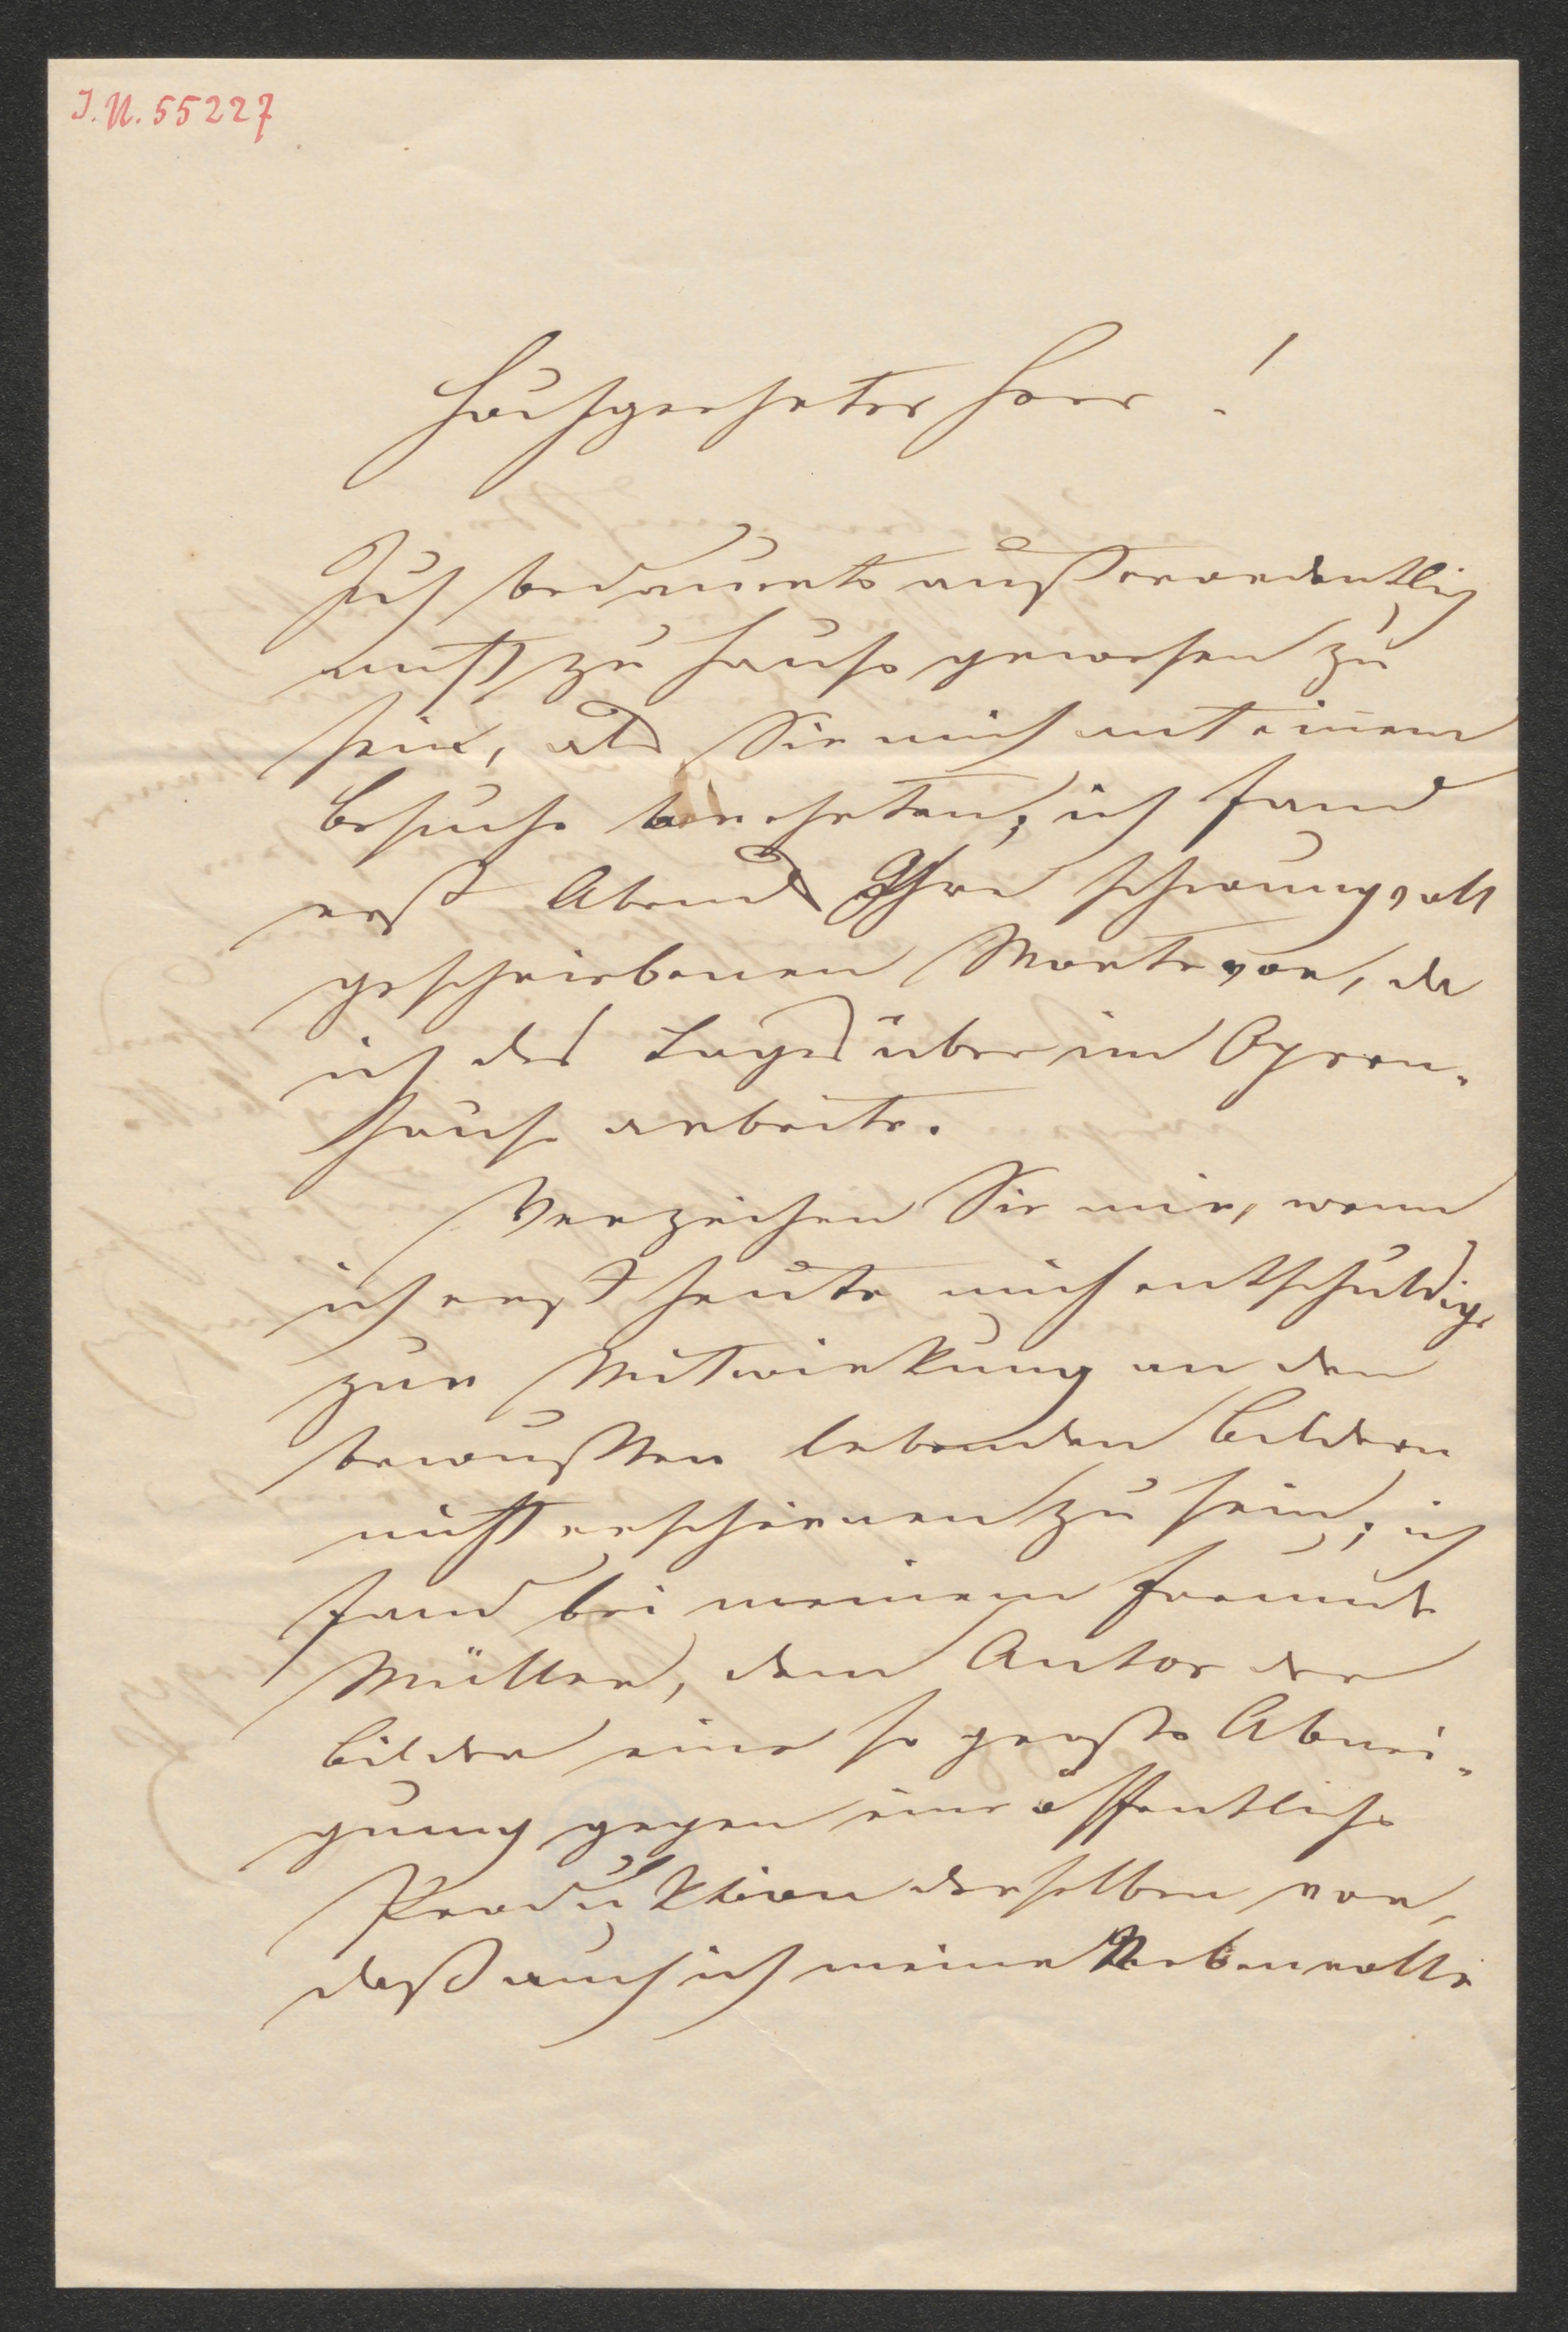 I.N. 55227
Hochgeehrter Herr!
Ich bedauerte außerordentlich
nicht zu Hause gewesen zu
sein, als Sie mich mit einem
Besuche beehrten; ich fand
erst Abends Ihre schwungvoll
geschriebenen Worte vor, da
ich des Tages über im Opern-
hause arbeite.
Verzeihen Sie mir, wenn
ich erst heute mich entschuldige
zur Mitwirkung an den
bewußten lebenden Bildern
nicht erschienen zu sein; ich
fand bei meinem Freunde
Müller, dem Autor der
Bilder eine so große Abnei-
gung gegen eine öffentliche
Produktion derselben vor,
daß auch ich meine Nebenrolle